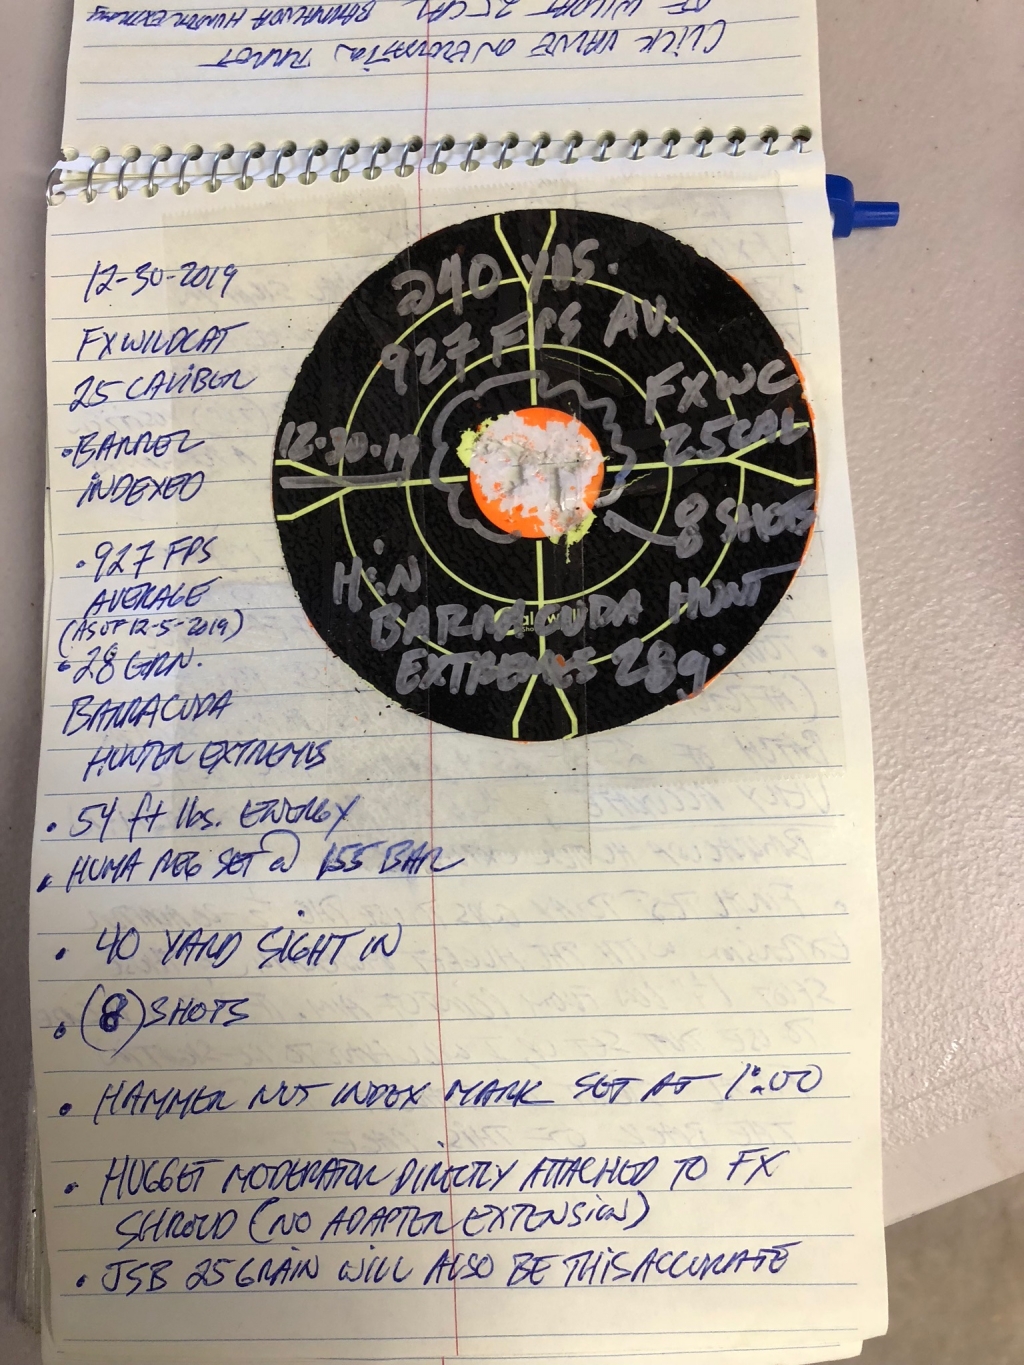 CLICK VALUE ON ELEVATION TURRET
OF WILDCAT 25 CAL
BARRACUDA HUNTER EXTREME
12-30-2019
FX WILDCAT
25 CALIBER
• BARREL
INDEXED
• 927 FPS
AVERAGE
(AS OF 12-5-2019)
• 28 GRN.
BARRACUDA
HUNTER EXTREMES
• 54 ft lbs. ENERGY
• HUMA REG SET @ 155 BAR
• 40 YARD SIGHT IN
• (8) SHOTS
• HAMMER NUT INDEX MARK SET AT 1:00
• HUGGET MODERATOR DIRECTLY ATTACHED TO FX
SHROUD (NO ADAPTER EXTENSION)
• JSB 25 GRAIN WILL ALSO BE THIS ACCURATE
@40 YDS.
927 FPS AV.
FX WC
25 CAL
12-30-19
8 SHOTS
H&N
BARRACUDA HUNT
EXTREMES 28g.